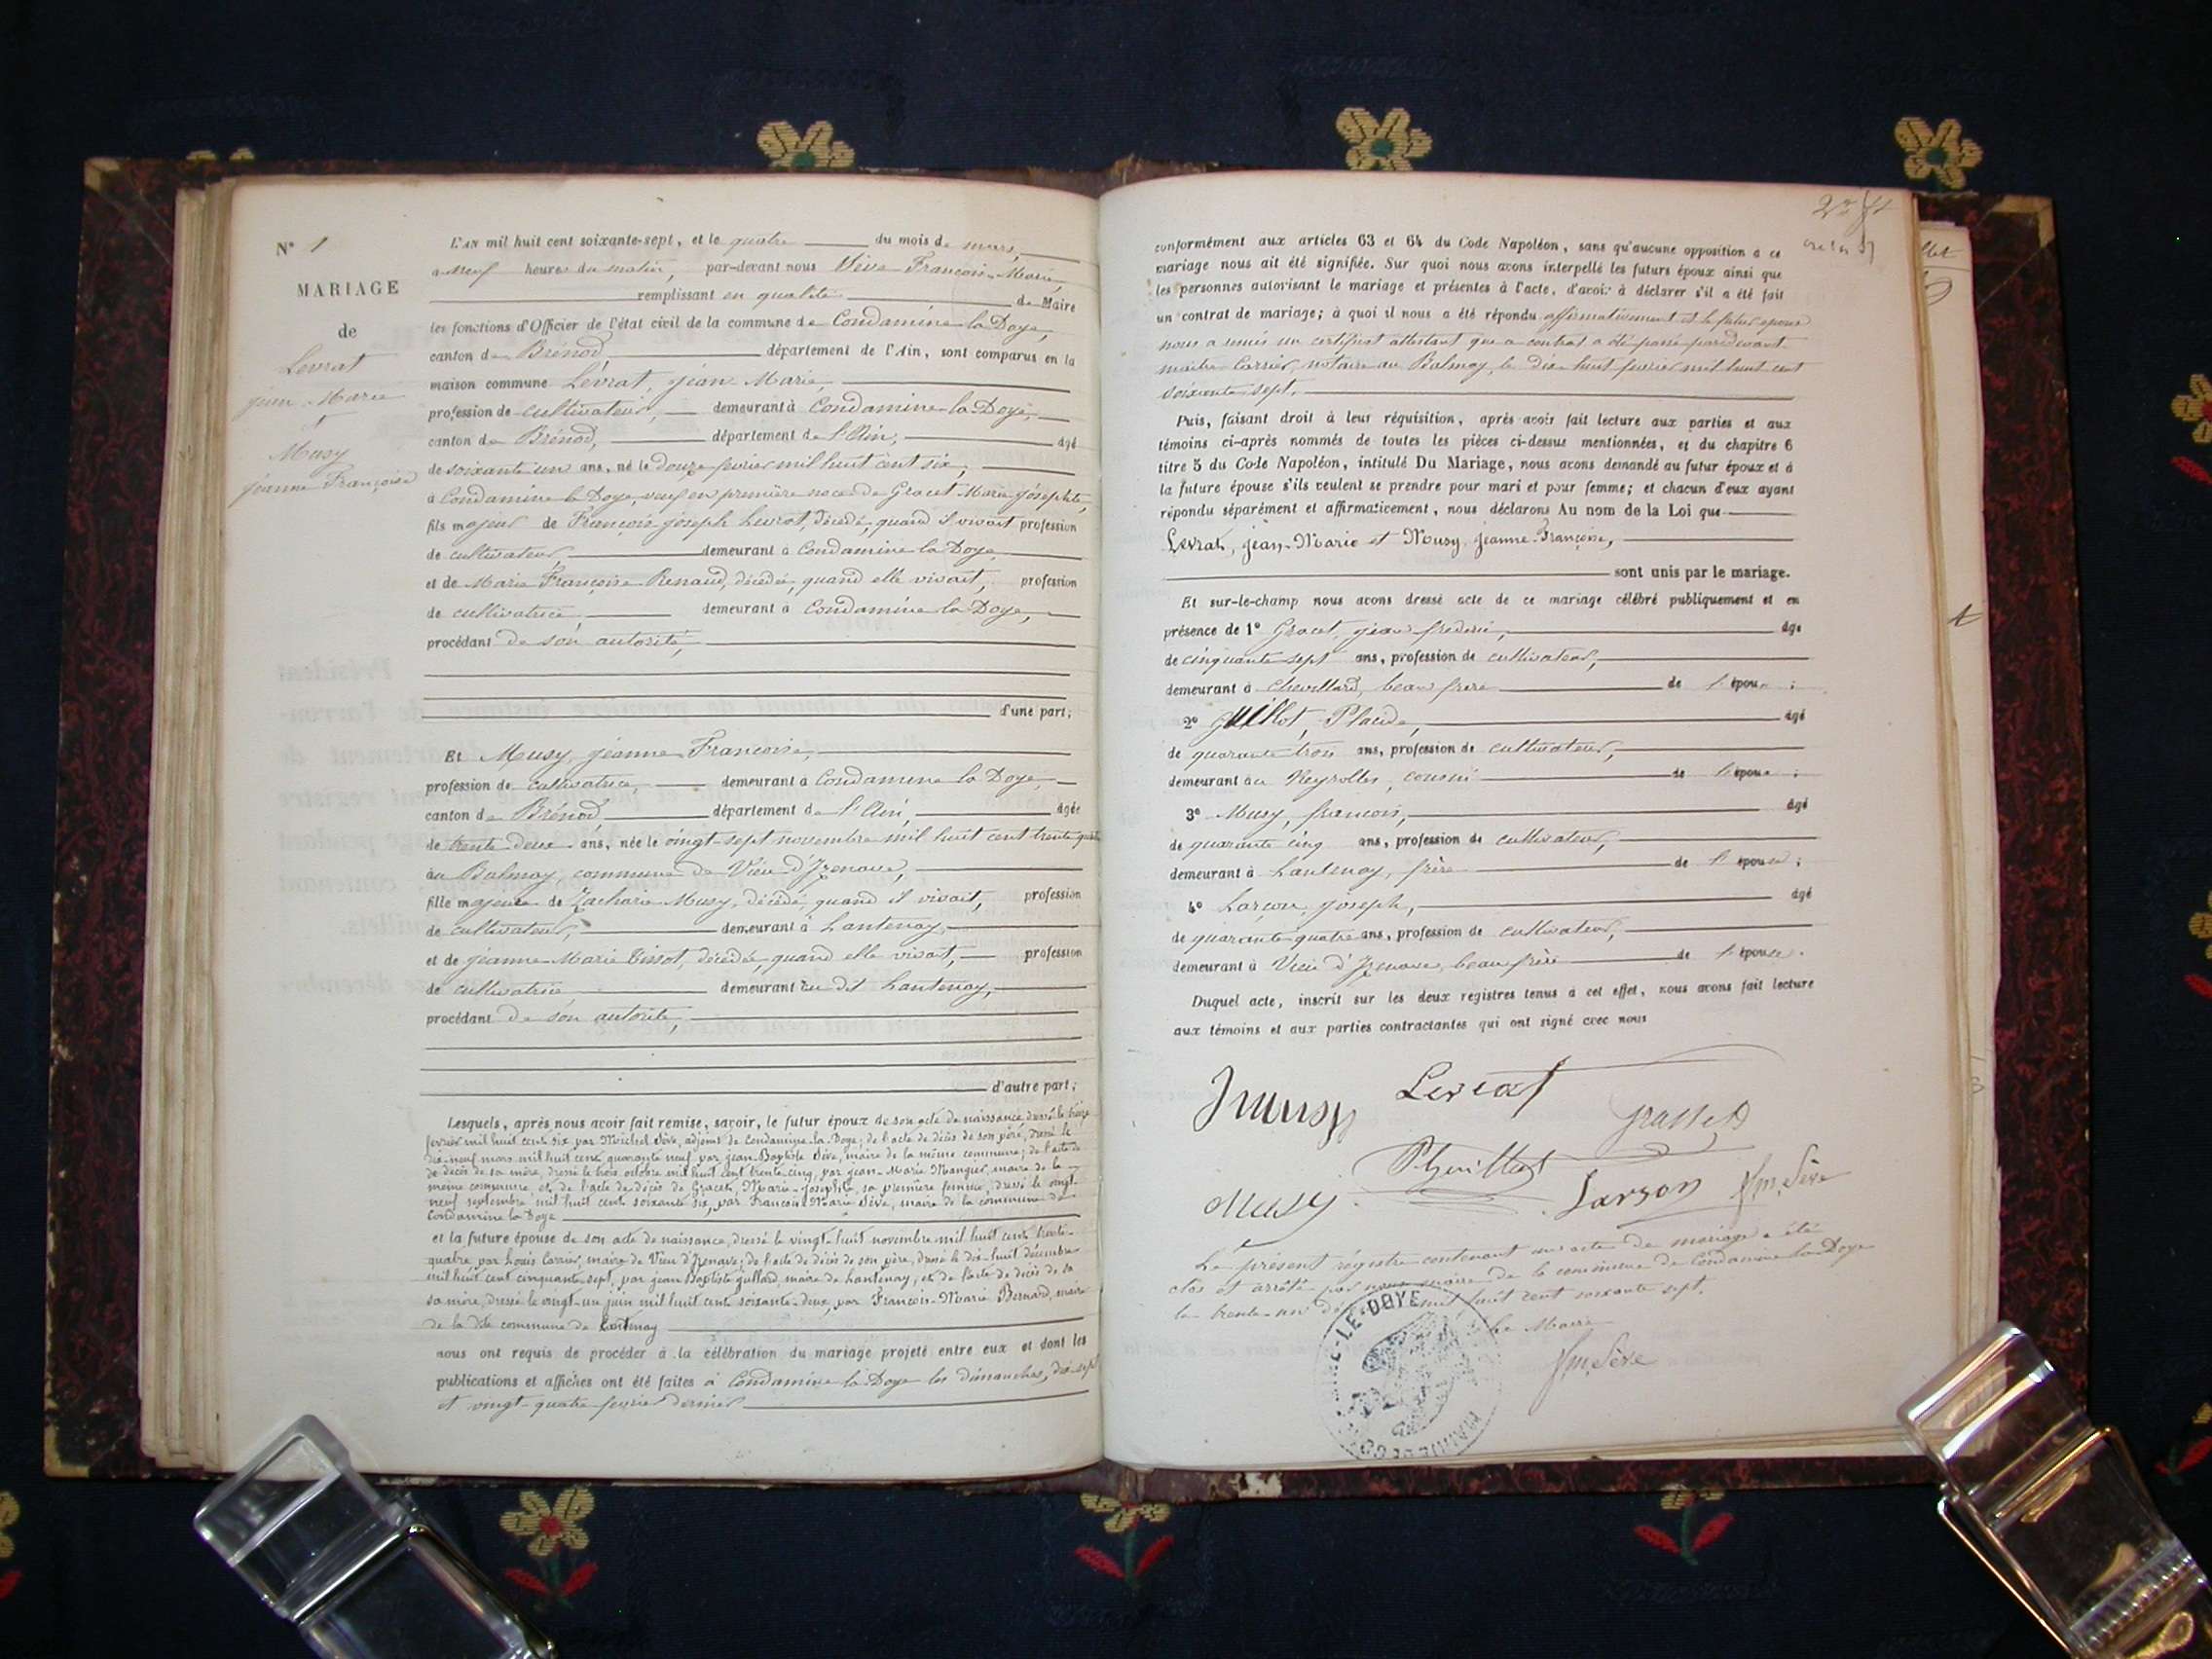 N° 1
MARIAGE
de
Levrat
jean-Marie
et
Musy
jeanne Françoise
L'AN mil huit cent soixante-sept, et le quatre du mois de mars,
a neuf heures du matin, par-devant nous Sève François-Marie,
remplissant en qualité de Maire
les fonctions d'Officier de l'état civil de la commune de Condamine la Doye,
canton de Brénod, département de l'Ain, sont comparus en la
maison commune Levrat, jean-Marie,
profession de cultivateur, demeurant à Condamine la Doye,
canton de Brénod, département de l'Ain, âgé
de soixante un ans, né le douze fevrier mil huit cent six,
à Condamine la Doye, veuf en première noce de Gracet Marie josephte,
fils majeur de François joseph Levrat, décédé, quand il vivait profession
de cultivateur demeurant à Condamine la Doye
et de Marie Françoise Renaud, décédée, quand elle vivait, profession
de cultivatrice, demeurant à Condamine la Doye,
procédant de son autorité,
d'une part;
Et Musy, jeanne Françoise,
profession de cultivatrice, demeurant à Condamine la Doye,
canton de Brénod département de l'Ain, âgée
de trente deux ans, née le vingt-sept novembre mil huit cent trente quatre
au Balmay, commune de Vieu d'Izenave,
fille majeure de Zacharie Musy, décédé, quand il vivait, profession
de cultivateur, demeurant à Lantenay,
et de jeanne-Marie Tissot, décédée, quand elle vivait, profession
de cultivatrice, demeurant au dit Lantenay,
procédant de son autorité,
d'autre part;
Lesquels, après nous avoir fait remise, savoir, le futur époux de son acte de naissance, dressé le treize
fevrier mil huit cent six, par Michel Sève, adjoint de Condamine-la-Doye; de l'acte de décès de son père, dressé le
dix-neuf mars mil huit cent quarante neuf, par jean-Baptiste Sève, maire de la même commune; de l'acte de
de décès de sa mère, dressé le trois octobre mil huit cent trente-cinq, par jean-Marie Manguer, maire de la
même commune, et de l'acte de décès de Gracet, Marie-josephte, sa première femme, dressé le vingt-
neuf septembre mil huit cent soixante six, par François-Marie Sève, maire de la commune de
Condamine la Doye
et la future épouse de son acte de naissance, dressé le vingt-huit novembre mil huit cent trente-
quatre, par Louis Carrier, maire de Vieu d'Izenave; de l'acte de décès de son père, dressé le dix-huit décembre
mil huit cent cinquante sept, par jean Baptiste jullard, maire de Lantenay; et de l'acte de décès de sa
sa mère, dressé le vingt-un juin mil huit cent soixante-deux, par François-Marie Bernard, maire
de la dite commune de Lantenay
nous ont requis de procéder à la célébration du mariage projeté entre eux et dont les
publications et affiches ont été faites à Condamine la Doye les dimanches, dix-sept
et vingt-quatre fevrier dernier
conformément aux articles 63 et 64 du Code Napoléon, sans qu'aucune opposition a ce
mariage nous ait été signifiée. Sur quoi nous avons interpellé les futurs époux ainsi que
les personnes autorisant le mariage et présentes à l'acte, d'avoir à déclarer s'il a été fait
un contrat de mariage; à quoi il nous a été répondu affirmativement et le futur époux
nous a remis un certificat attestant que ce contrat a été passé pardevant
maître Carrier, notaire au Balmay, le dix-huit fevrier mil huit cent
soixante sept.
Puis, faisant droit à leur réquisition, après avoir fait lecture aux parties et aux
témoins ci-après nommés de toutes les pièces ci-dessus mentionnées, et du chapitre 6
titre 5 du Code Napoléon, intitulé Du Mariage, nous avons demandé au futur époux et à
la future épouse s'ils veulent se prendre pour mari et pour femme; et chacun d'eux ayant
répondu séparément et affirmativement, nous déclarons Au nom de la Loi que
Levrat, jean-Marie et Musy jeanne-Françoise,
sont unis par le mariage.
Et sur-le-champ nous avons dressé acte de ce mariage célébré publiquement et en
présence de 1° Gracet, jean frederic, âgé
de cinquante sept ans, profession de cultivateur,
demeurant à Chevillard, beau frère de l'époux;
2° Guillot, Placide, âgé
de quarante trois ans, profession de cultivateur,
demeurant au Neyrolles, cousin de l'époux;
3° Musy, francois, âgé
de quarante cinq ans, profession de cultivateur,
demeurant à Lantenay, frère de l'épouse;
4° Larçon, joseph, âgé
de quarante quatre ans, profession de cultivateur,
demeurant à Vieu d'Izenave, beau frère de l'épouse.
Duquel acte, inscrit sur les deux registres tenus à cet effet, nous avons fait lecture
aux témoins et aux parties contractantes qui ont signé avec nous
Levrat
Musy
Larson
Le présent régistre contenant un acte de mariage a été
clos et arrêté par nous maire de la commune de Condamine la Doye
le trente-un mil huit cent soixante sept.
Le Maire
fm. Sève